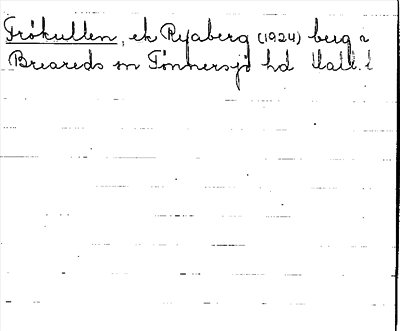 Frökullen, ek Ryaberg (1924) berg i
Breareds sn Tönnersjö hd Hall. l